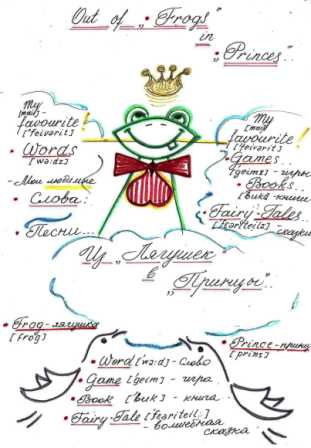 Out of „Frogs"
in
„Princes"..
My
[mai]
favourite!
['feivərit]
• Words
[wə:dz]
- Мои любимые
• Слова:
• Песни...
My
[mai]
favourite!
['feivərit]
• Games...
[geimz] - игры
• Books..
[buks] - книги
• Fairy-Tales...
['fɛəriteilz] - сказки
Из „Лягушек"
в
„Принцы"...
• Frog - лягушка
[frog]
• Prince - принц
[prins]
• Word [wə:d] - Слово
• Game [geim] - игра
• Book [buk] - книга
• Fairy-Tale ['fɛəriteil] -
- волшебная
сказка